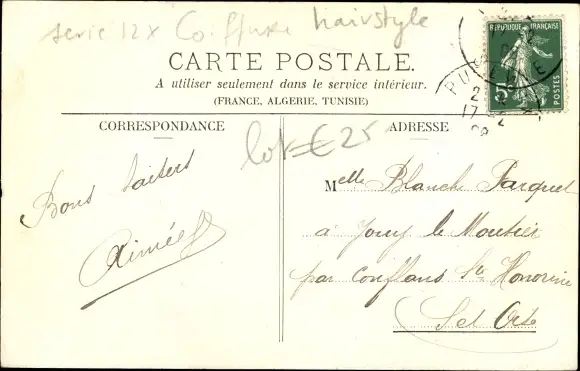 serie 12x Coiffure hairstyle
CARTE POSTALE.
A utiliser seulement dans le service intérieur.
(FRANCE, ALGERIE, TUNISIE)
REPUBLIQUE FRANÇAISE
5
POSTES
2
17 - 2
CORRESPONDANCE
lot € 25
ADRESSE
Bons baisers
Aimée
Melle Blanche Parquet
à Jouy le Moutier
par Conflans Ste Honorine
S et Oise